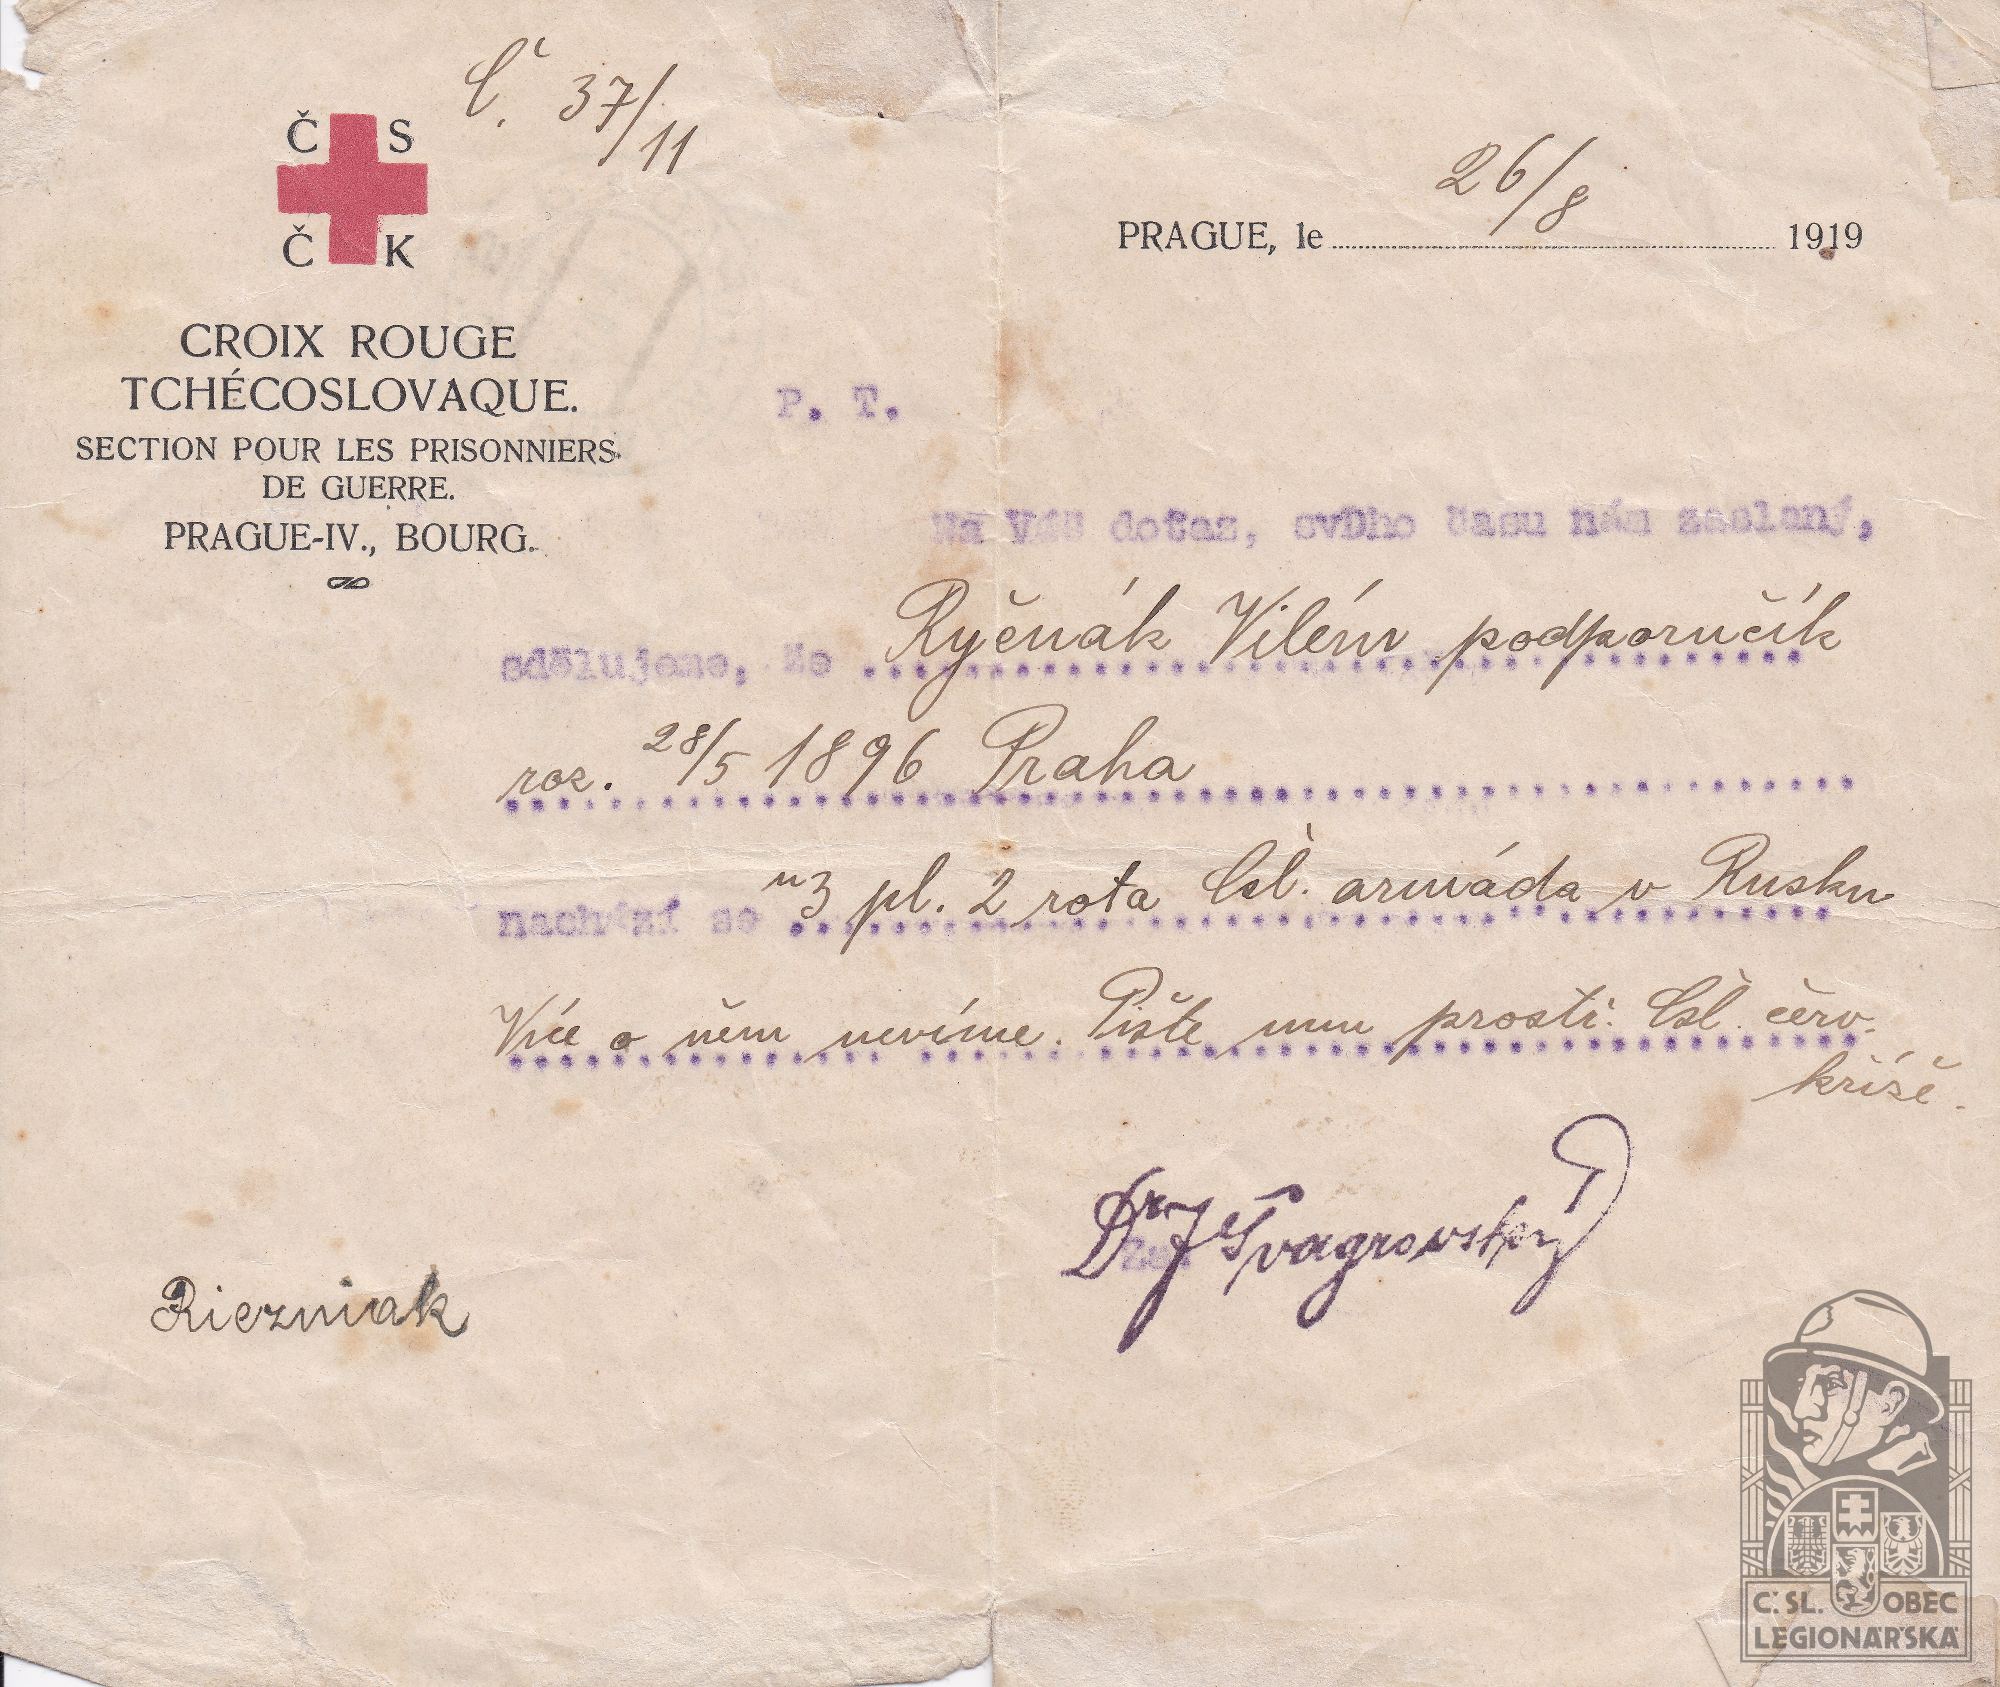 Č. 37/11
Č S
Č K
CROIX ROUGE
TCHÉCOSLOVAQUE.
SECTION POUR LES PRISONNIERS
DE GUERRE.
PRAGUE-IV., BOURG.
PRAGUE, le 26/8 1919
P. T.
Na Váš dotaz, svého času nám zaslaný,
sdělujeme, že Ryčnák Vilém podporučík
roz. 28/5 1896 Praha
nachází se u 3 pl. 2 rota Čsl. armáda v Rusku
Více o něm nevíme. Pište mu prostř. Čsl. červ.
kříže.
Dr J Švagrovský
Riezniak
Č. SL. OBEC
LEGIONÁŘSKÁ